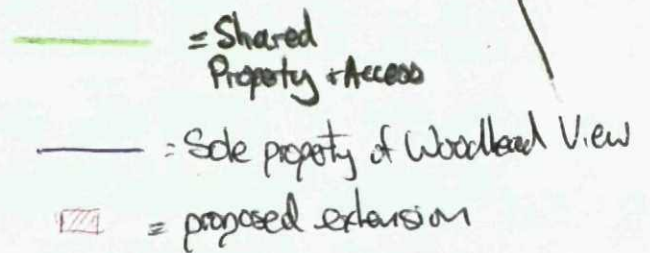 = Shared
Property + Access
= Sole property of Woodhead View
= proposed extension